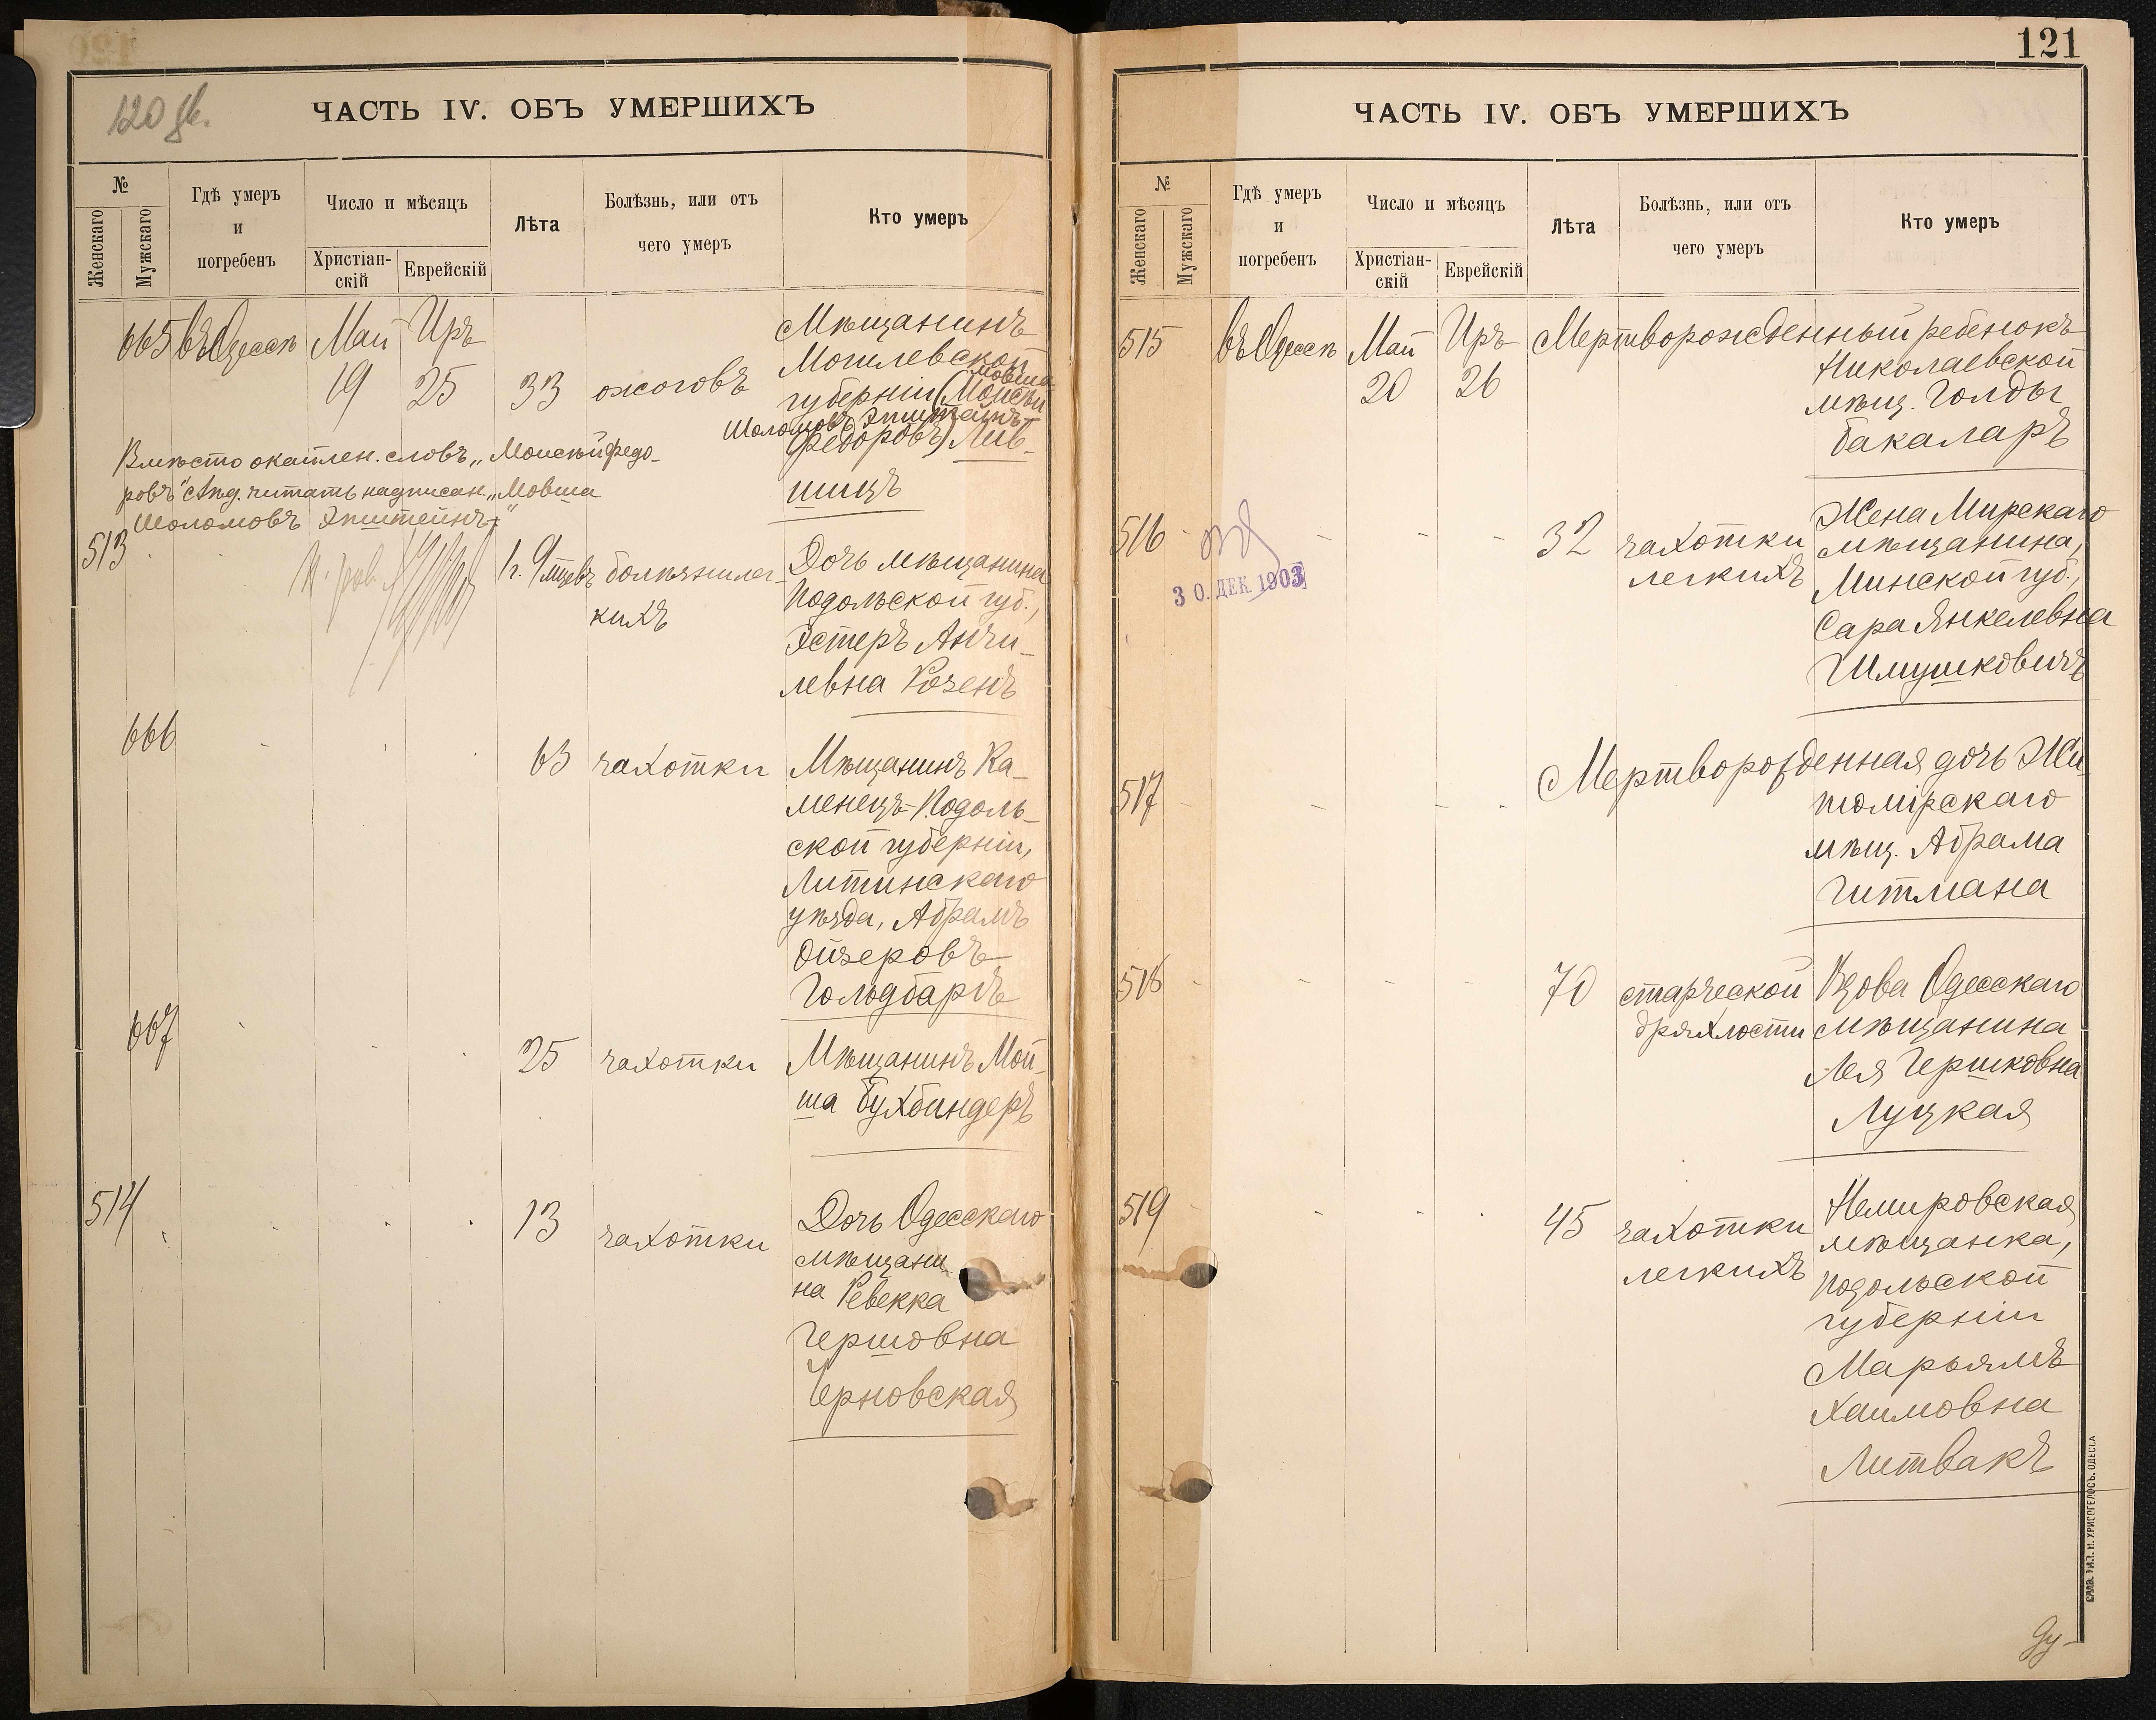 120 об.
ЧАСТЬ IV. ОБЪ УМЕРШИХЪ
№
Женскаго
Мужскаго
Гдѣ умеръ
и
погребенъ
Число и мѣсяцъ
Христіан-
скій
Еврейскій
Лѣта
Болѣзнь, или отъ
чего умеръ
Кто умеръ
665 въ Одессѣ Май Иръ
19 25 33 ожоговъ
Мѣщанинъ
Могилевской
губерніи (Моисѣй
Мовша
Шоломовъ Эпштейнъ
Федоровъ) Лив-
шицъ
Вмѣсто окаймлен. словъ „Моисѣй Федо-
ровъ" слѣд. читать надписан. „Мовша
Шоломовъ Эпштейнъ"
513
1 г. 9 мѣцевъ болѣзни лег-
кихъ
Дочь мѣщанина
Подольской губ.,
Эстеръ Анчи-
левна Розенъ
666
63 чахотки
Мѣщанинъ Ка-
менецъ-Подоль-
ской губерніи,
Литинскаго
уѣзда, Абрамъ
Ойзеровъ
Гольдбартъ
667
25 чахотки
Мѣщанинъ Мой-
ша Бухбиндеръ
514
13 чахотки
Дочь Одесскаго
мѣщани-
на Ревекка
Гершовна
Черновская
121
ЧАСТЬ IV. ОБЪ УМЕРШИХЪ
№
Женскаго
Мужскаго
Гдѣ умеръ
и
погребенъ
Число и мѣсяцъ
Христіан-
скій
Еврейскій
Лѣта
Болѣзнь, или отъ
чего умеръ
Кто умеръ
515 въ Одессѣ Май Иръ Мертворожденный ребенокъ
20 26
Николаевской
мѣщ. Голды
Бакаларъ
516
30. ДЕК. 1903
32 чахотки
легкихъ
Жена Мирскаго
мѣщанина,
Минской губ.,
Сара Янкелевна
Шмушковичъ
517
Мертворожденная дочь Жи-
томірскаго
мѣщ. Абрама
Гитмана
518
70 старческой
дряхлости
Вдова Одесскаго
мѣщанина
Лея Гершковна
Луцкая
519
45 чахотки
легкихъ
Немировская
мѣщанка,
Подольской
губерніи
Марьямъ
Хаимовна
Литвакъ
Слав. тип. Н. ХРИСОГЕЛОСЪ. ОДЕССА
Ду-